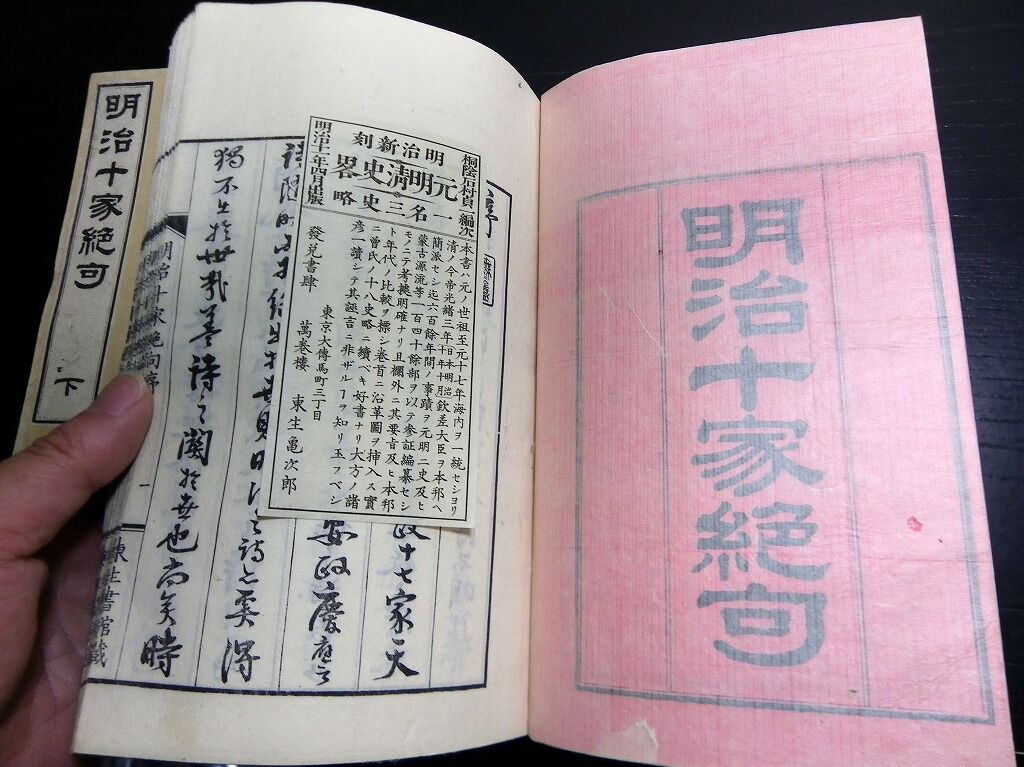 明治十家絶句
序
政十七家一天
安政慶應之
詩與得
獨不止於世哉蓋詩之關於世也尚矣時
明治十家絶句序
一
東生書館藏
桐陰石村貞一編次
明治新刻
元明清史畧
一名三史略
明治十一年四月出版
本書ハ元ノ世祖至元十七年海内ヲ一統セシヨリ
清ノ今帝光緒三年日本明治十年十月欽差大臣ヲ本邦ヘ
簡派セシ迄六百餘年間ノ事蹟ヲ元明二史及ヒ
蒙古源流等一百四十餘部ヲ以テ參証編纂セシ
モノニテ考據明確ナリ且欄外ニ其要旨及ヒ本邦
ト年代ノ比較ヲ標シ卷首ニ沿革圖ヲ挿入ス實
ニ曽氏ノ十八史略ニ續ベキ好書ナリ大方ノ諸
彦一讀シテ其誣言ニ非ザルヿヲ知リ玉フベシ
東京大傳馬町三丁目
發兌書肆 萬卷樓 東生亀次郎
明治十家絶句 下